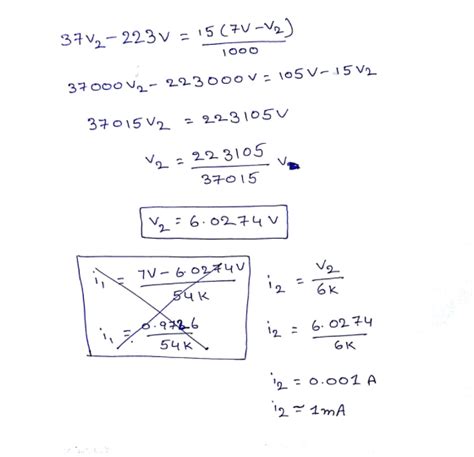 37V₂ - 223V = 15(7V - V₂) / 1000
37000V₂ - 223000V = 105V - 15V₂
37015V₂ = 223105V
V₂ = 223105 / 37015 V
V₂ = 6.0274V
i₁ = 7V - 6.0274V / 54K
i₁ = 0.9726 / 54K
i₂ = V₂ / 6K
i₂ = 6.0274 / 6K
i₂ = 0.001 A
i₂ ≈ 1mA